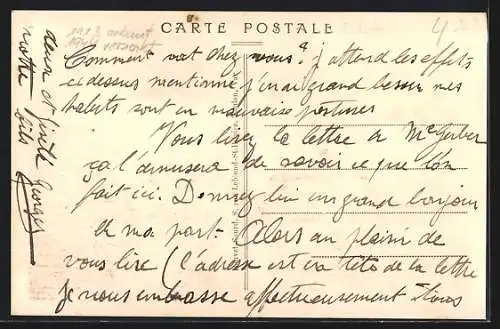 CARTE POSTALE
Comment vat chez vous? j'attend les effets
ci dessus mentionné j'en ai grand besoin mes
habits sont en mauvaise postures
Vous lirez la lettre a Me Gerber
ça l'amusera de savoir ce que l'on
fait ici. Donnez lui un grand bonjour
de ma part. Alors au plaisir de
vous lire (l'adresse est en tête de la lettre
je vous embrasse affectueusement tous
deux et
votre fils Georges
4